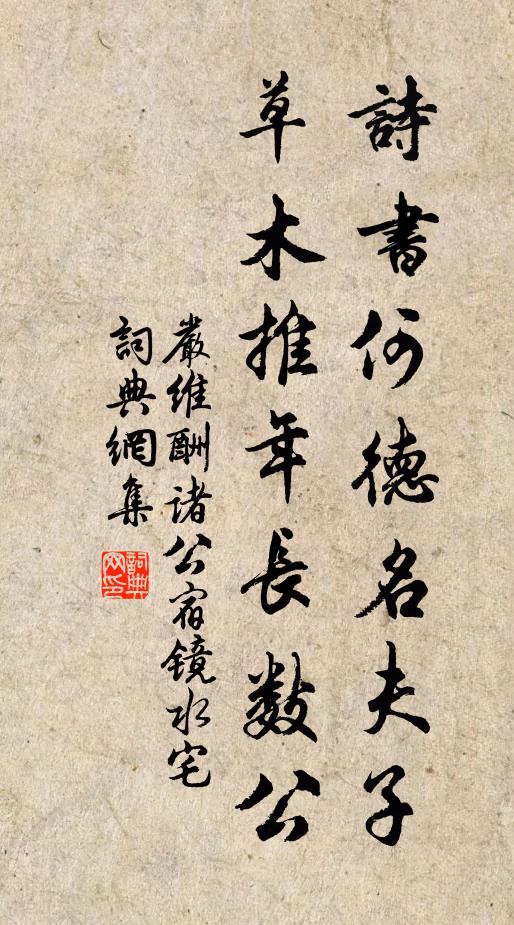 詩書何德名夫子
草木推年長數公
嚴維酬诸公宿镜水宅
詞典網集
詞典网印